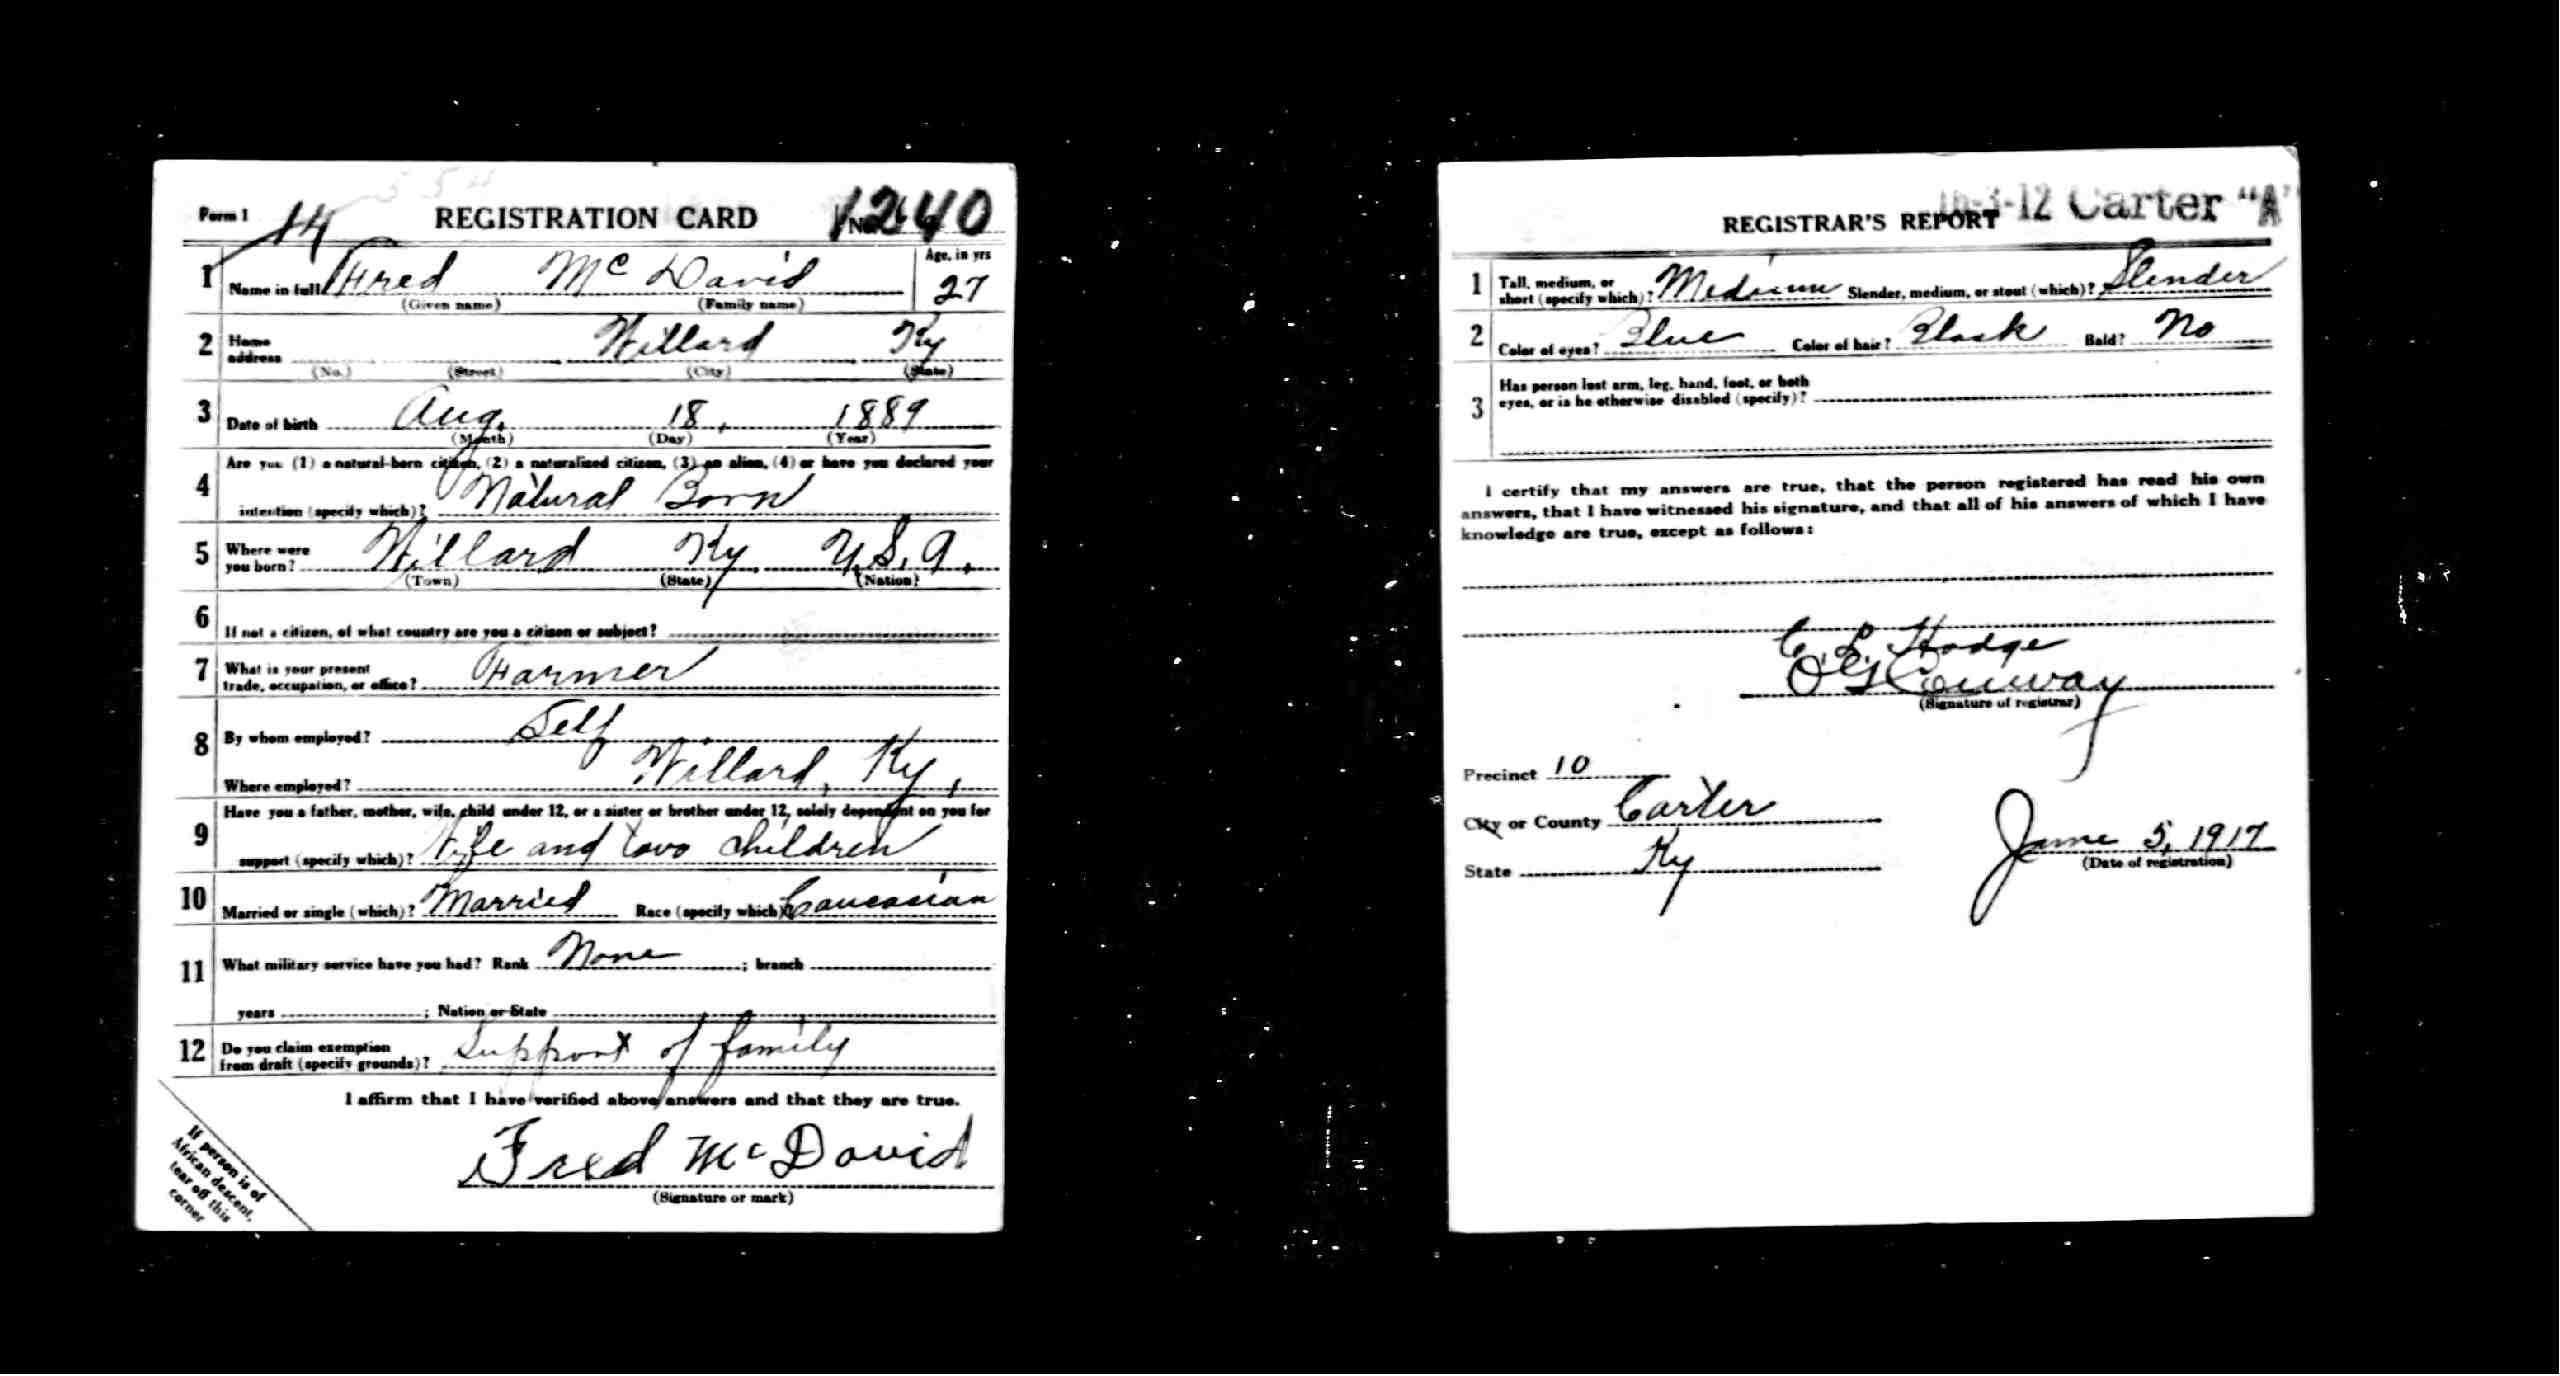 554
Form 1 14 REGISTRATION CARD No. 1240
1 Name in full Fred McDavid Age, in yrs 27
(Given name) (Family name)
2 Home address Willard Ky
(No.) (Street) (City) (State)
3 Date of birth Aug. 18, 1889
(Month) (Day) (Year)
4 Are you (1) a natural-born citizen, (2) a naturalized citizen, (3) an alien, (4) or have you declared your
intention (specify which)? Natural Born
5 Where were you born? Willard Ky. U.S.A.
(Town) (State) (Nation)
6 If not a citizen, of what country are you a citizen or subject?
7 What is your present trade, occupation, or office? Farmer
8 By whom employed? Self
Where employed? Willard, Ky,
9 Have you a father, mother, wife, child under 12, or a sister or brother under 12, solely dependent on you for
support (specify which)? Wife and two children
10 Married or single (which)? Married Race (specify which)? Caucasian
11 What military service have you had? Rank None ; branch
years ; Nation or State
12 Do you claim exemption from draft (specify grounds)? Support of family
I affirm that I have verified above answers and that they are true.
Fred McDavid
(Signature or mark)
If person is of
African descent,
tear off this
corner
16-3-12 Carter "A"
REGISTRAR'S REPORT
1 Tall, medium, or short (specify which)? Medium Slender, medium, or stout (which)? Slender
2 Color of eyes? Blue Color of hair? Black Bald? No
3 Has person lost arm, leg, hand, foot, or both
eyes, or is he otherwise disabled (specify)?
I certify that my answers are true, that the person registered has read his own
answers, that I have witnessed his signature, and that all of his answers of which I have
knowledge are true, except as follows:
C. L. Hodge
O G Conway
(Signature of registrar)
Precinct 10
City or County Carter
State Ky
June 5, 1917
(Date of registration)